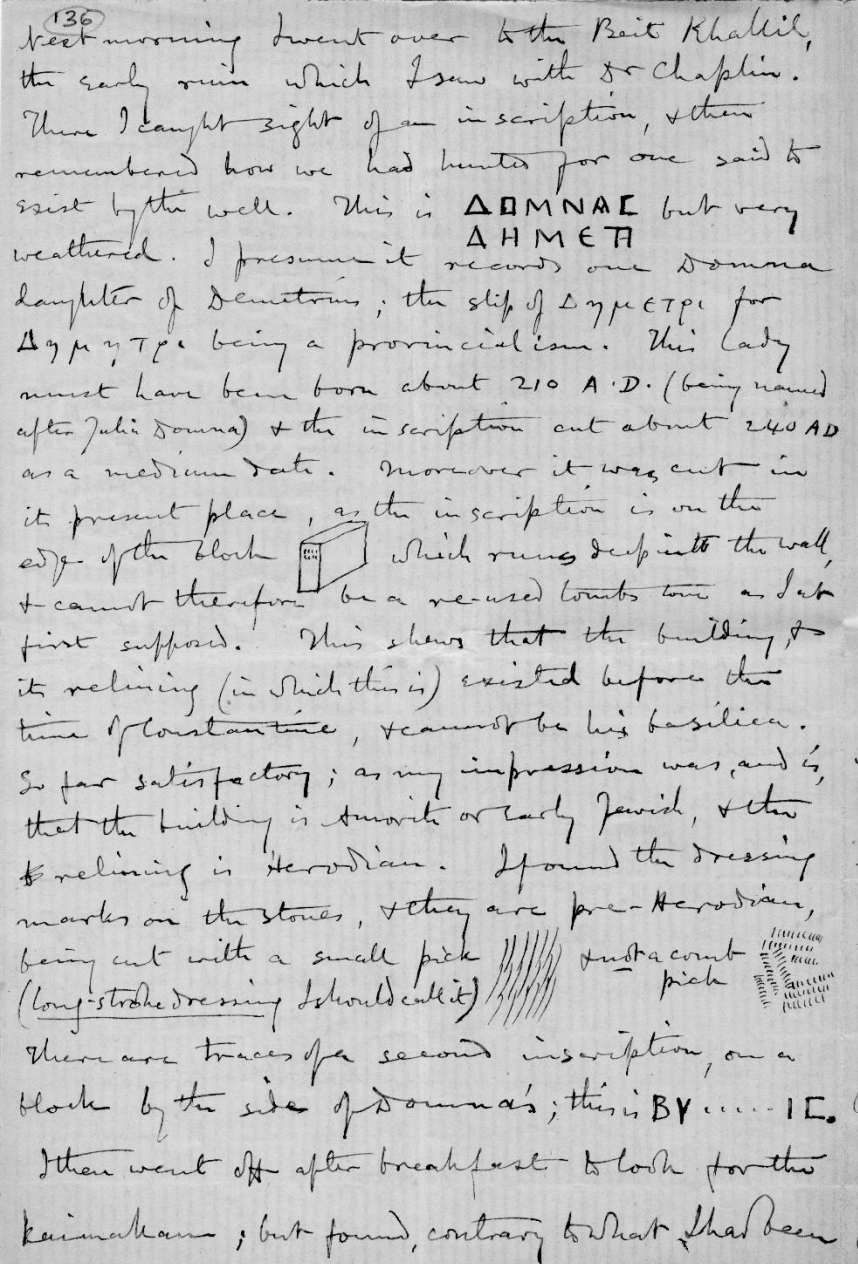 136
Next morning I went over to the Beit Khallil,
the early ruin which I saw with Dr Chaplin.
There I caught sight of an inscription, & then
remembered how we had hunted for one said to
exist by the well. This is ΔΟΜΝΑС but very
ΔΗΜΕΤΡ
weathered. I presume it records one Domna
daughter of Demetrius; the slip of Δημετρι for
Δημητρι being a provincialism. This lady
must have been born about 210 A.D. (being named
after Julia Domna) & the inscription cut about 240 AD
as a medium date. Moreover it was cut in
its present place, as the inscription is on the
edge of the block which runs deep into the wall,
& cannot therefore be a re-used tombstone as I at
first supposed. This shews that the building, &
its relining (in which this is) existed before the
time of Constantine, & cannot be his basilica.
So far satisfactory; as my impression was, and is,
that the building is Amorite or early Jewish, & the
relining is Herodian. I found the dressing
marks on the stones, & they are pre-Herodian,
being cut with a small pick & not a comb
pick
(long-stroke dressing I should call it)
There are traces of a second inscription, on a
block by the side of Domna's; this is BY ..... IC.
I then went off after breakfast to look for the
Kaimakam; but found, contrary to what I had been